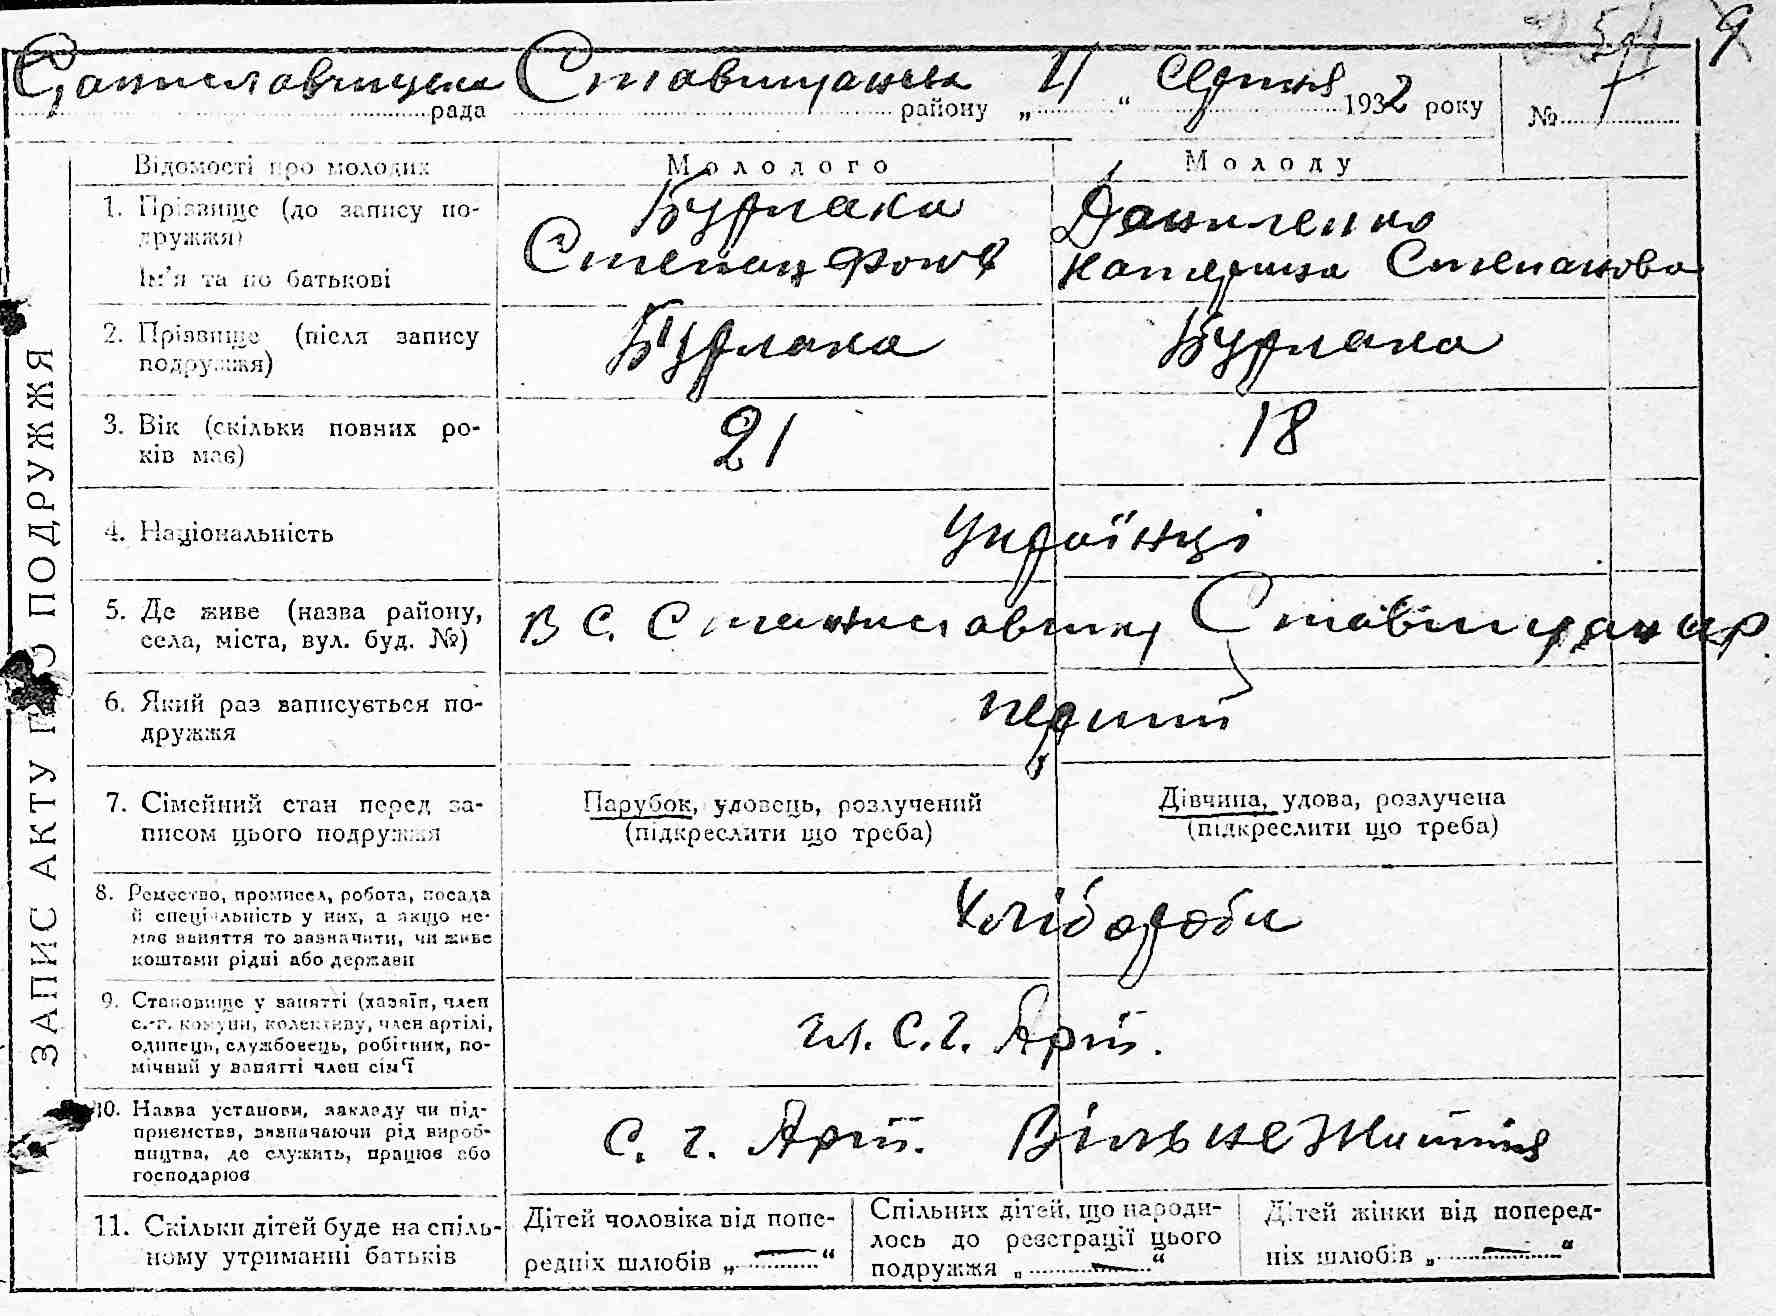 9
Станиславчицька рада Ставищанськ району „ 11 “ Серпня 1932 року № 7
ЗАПИС АКТУ ПРО ПОДРУЖЖЯ
Відомості про молодих Молодого Молоду
1. Прізвище (до запису по- Бурлака Даниленко
дружжя)
Ім'я та по батькові Степан Катерина Степанова
2. Прізвище (після запису Бурлака Бурлака
подружжя)
3. Вік (скільки повних ро- 21 18
ків має)
4. Національність Українці
5. Де живе (назва району, В с. Станиславчику Ставищан р.
села, міста, вул. буд. №)
6. Який раз записується по- перший
дружжя
7. Сімейний стан перед за- Парубок, удовець, розлучений Дівчина, удова, розлучена
писом цього подружжя (підкреслити що треба) (підкреслити що треба)
8. Ремество, промисел, робота, посада Хлібороби
й спеціяльність у них, а якщо не-
має заняття то зазначити, чи живе
коштами рідні або держави
9. Становище у занятті (хазяїн, член чл. с.г. Арт.
с.-г. комуни, колективу, член артілі,
одинець, службовець, робітник, по-
мічний у занятті член сім'ї
10. Назва установи, закладу чи під- С. г. Арт. Вільне Життя
приємства, зазначаючи рід вироб-
ництва, де служить, працює або
господарює
11. Скільки дітей буде на спіль- Дітей чоловіка від попе- Спільних дітей, що народи- Дітей жінки від поперед-
ному утриманні батьків редніх шлюбів „ — “ лось до реєстрації цього ніх шлюбів „ — “
подружжя „ — “